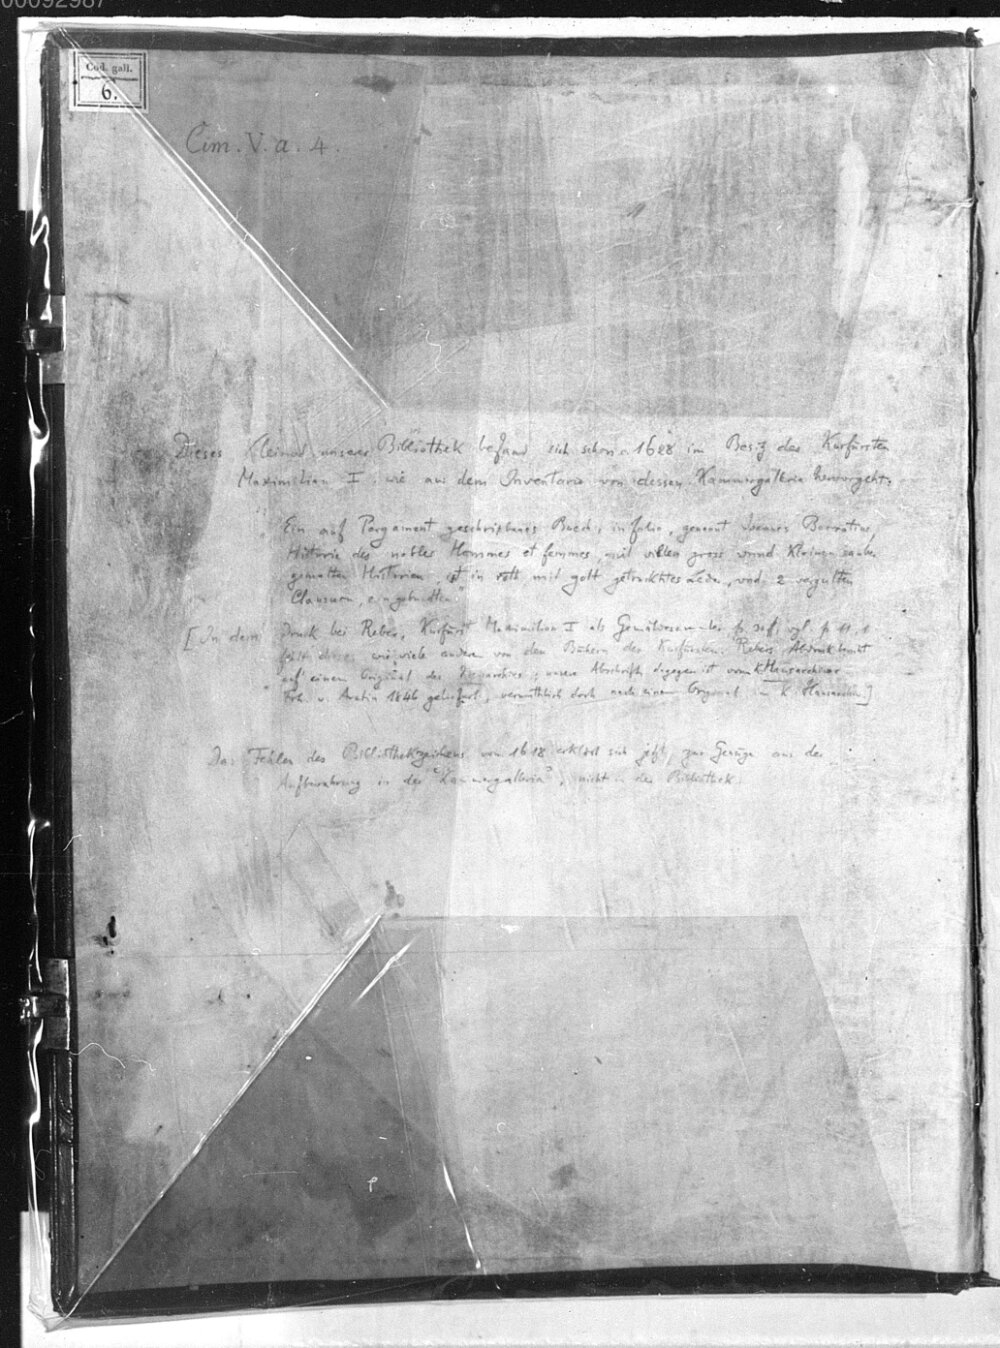 00092987
Cod. gall.
6.
Cim. V. a. 4.
Dieses Kleinod unserer Bibliothek befand sich schon 1628 im Besiz des Kurfürsten
Maximilian I, wie aus dem Inventare von dessen Kammergallerie hervorgeht:
Ein auf Pergament geschribenes Buech, in folio, genent Joannes Boccatius
Historie des nobles Hommes et femmes, mit villen gross vnnd kleinen sauber
gemalten Historien, ist in roth mit golt getruckhtes Leder, vnd 2 vergulten
Clausurn, eingebundten."
[In dem Druck bei Reber, Kurfürst Maximilian I als Gemäldesammler p.
fehlt dieses, wie viele andere von den Büchern des Kurfürsten. Rebers Abdruck beruht
auf einem Original des Kreisarchivs; unsere Abschrift dagegen ist vom k. Hausarchivar
Frh. v. Aretin 1846 geliefert, vermuthlich doch nach einem Original im k. Hausarchiv.]
Das Fehlen des Bibliothekzeichens von 1618 erklärt sich jetzt zur Genüge aus der
Aufbewahrung in der "Kammergalleria", nicht in der Bibliothek.